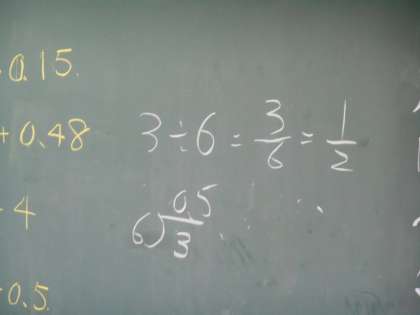 0.15.
+ 0.48
4
0.5.
3 ÷ 6 = 3/6 = 1/2
0.5
6)3